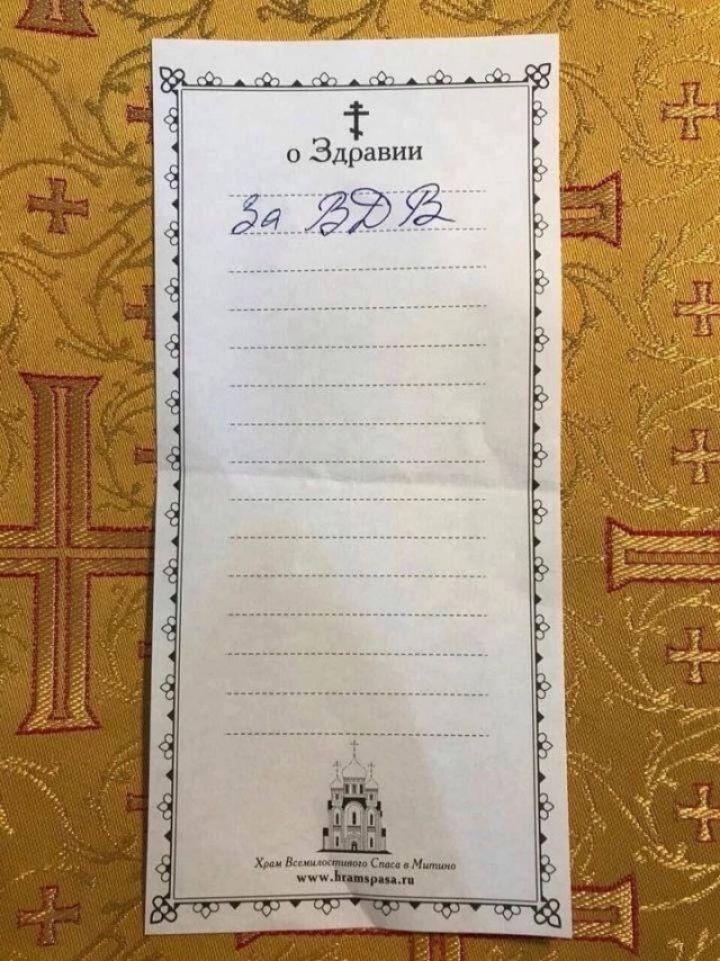 о Здравии
За ВДВ
Храм Всемилостивого Спаса в Митино
www.hramspasa.ru